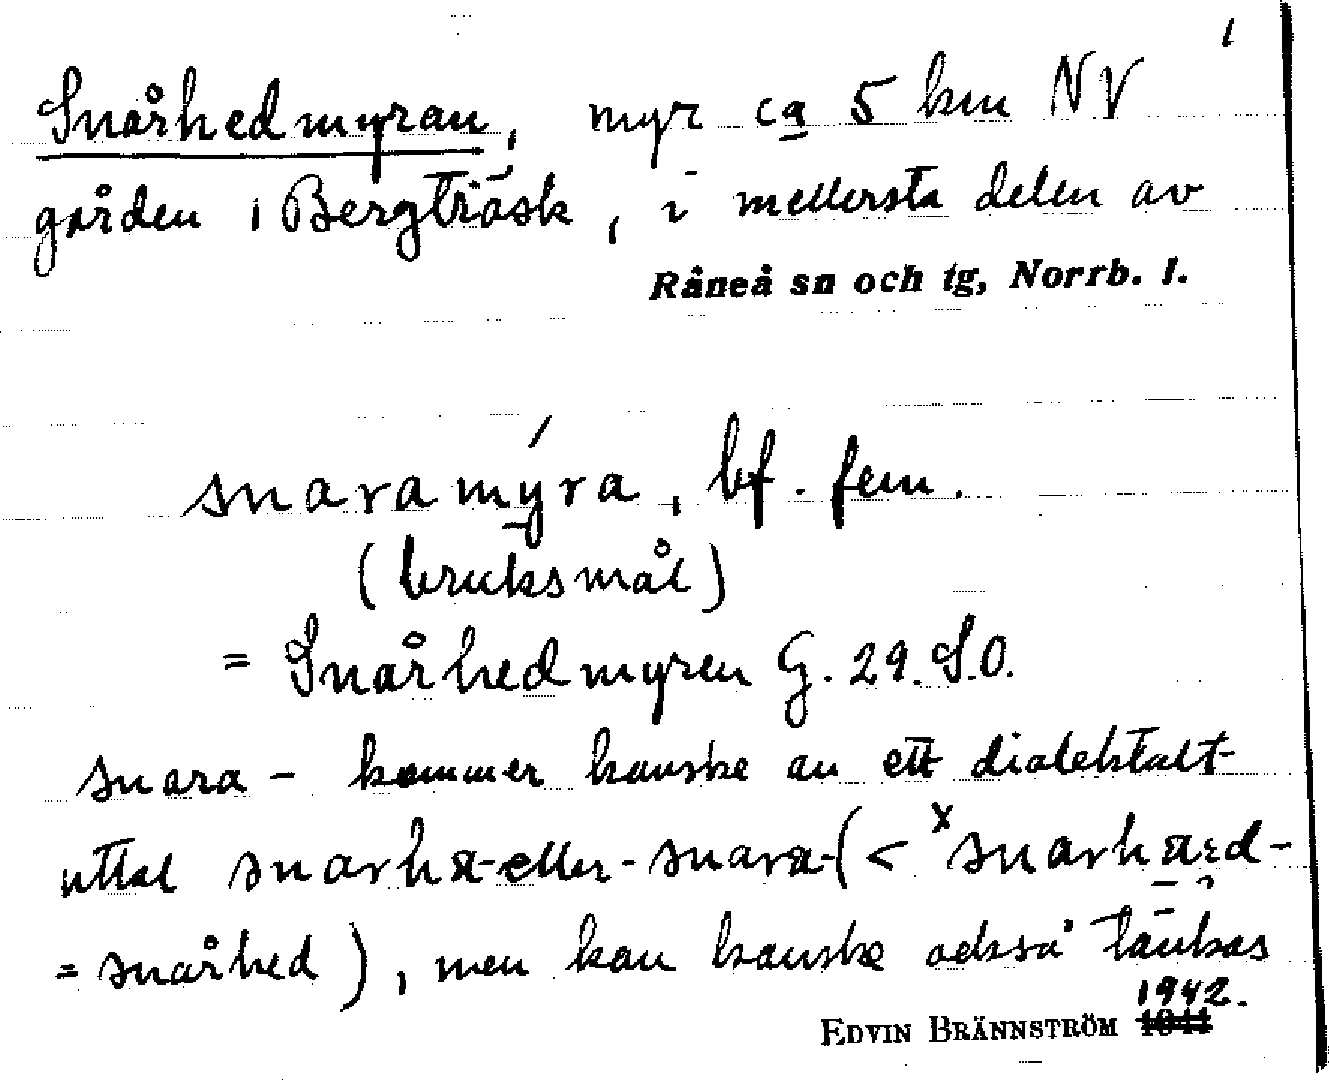 1
Snårhedmyran, myr ca 5 km NV
gården i Bergträsk, i mellersta delen av
Råneå sn och tg, Norrb. l.
snaramýra, bf. fem.
(bruksmål)
= Snårhedmyren G. 29. S.O.
snara - kommer kanske av ett dialektalt
uttal snarhä- eller - snara- (< ˣsnarhäd-
= snårhed), men kan kanske också tänkas
1942.
EDVIN BRÄNNSTRÖM 1941